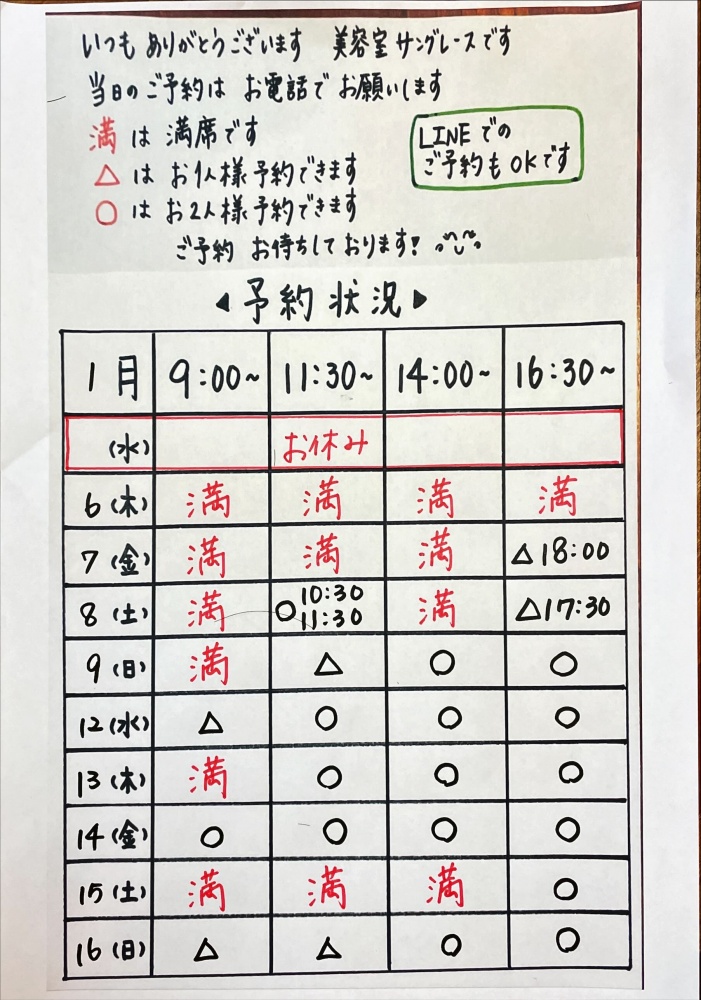 いつも ありがとうございます 美容室 サングレースです
当日の ご予約は お電話で お願いします
満 は 満席です
△ は お1人様 予約できます
○ は お2人様 予約できます
LINE での
ご予約も OKです
ご予約 お待ちしております!
◀ 予約状況 ▶
1月 9:00~ 11:30~ 14:00~ 16:30~
(水) お休み
6(木) 満 満 満 満
7(金) 満 満 満 △18:00
8(土) 満 ○10:30 11:30 満 △17:30
9(日) 満 △ ○ ○
12(水) △ ○ ○ ○
13(木) 満 ○ ○ ○
14(金) ○ ○ ○ ○
15(土) 満 満 満 ○
16(日) △ △ ○ ○